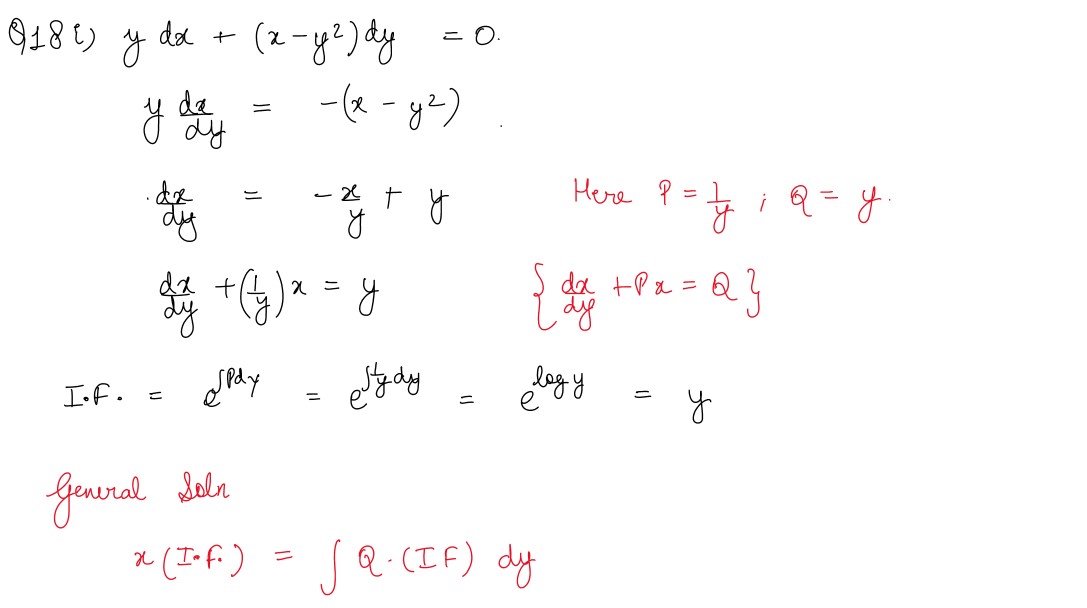 Q18 i) y dx + (x - y²) dy = 0.
y dx/dy = -(x - y²)
dx/dy = -x/y + y Here P = 1/y ; Q = y.
dx/dy + (1/y) x = y { dx/dy + Px = Q }
I.F. = e^∫Pdy = e^∫1/y dy = e^log y = y
General Soln
x (I.F.) = ∫ Q . (IF) dy